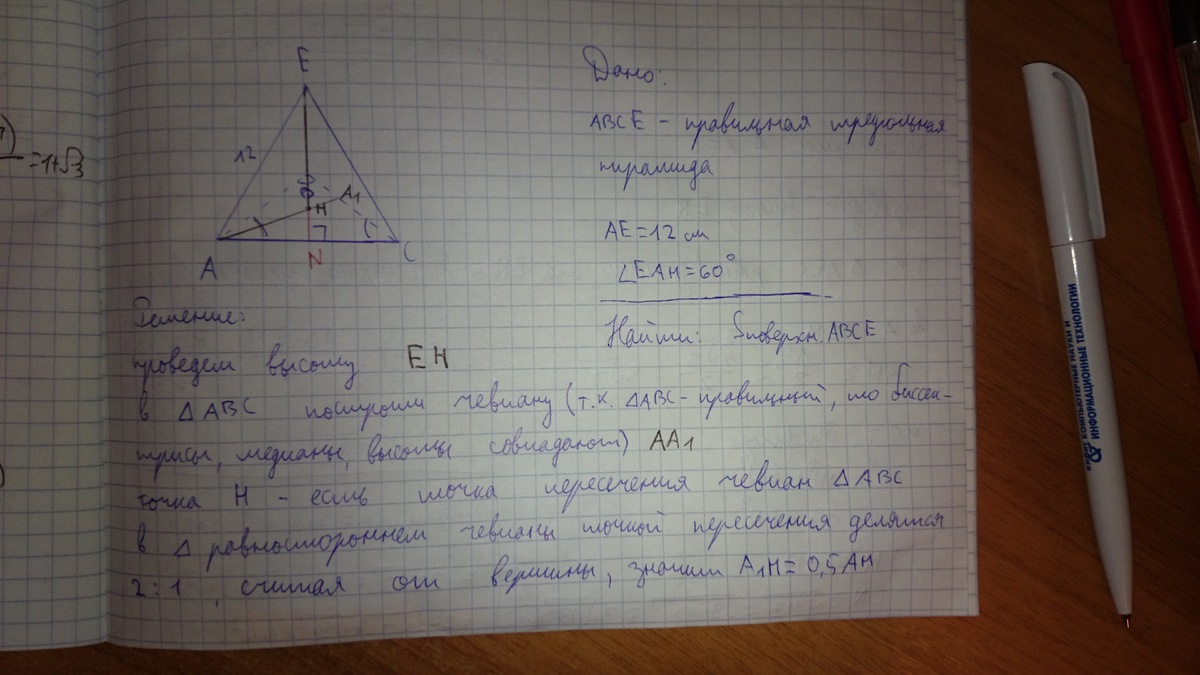 E
12
A1
H
A
N
C
=1+√3
Дано:
ABCE - правильная треугольная
пирамида
AE=12 см
∠EAH=60°
Найти: Sповерхн. ABCE
Решение:
проведем высоту EH
в △ABC построим чевиану (т.к. △ABC - правильный, то биссек-
трисы, медианы, высоты совпадают) AA1
точка H - есть точка пересечения чевиан △ABC
в △ равностороннем чевианы точкой пересечения делятся
2:1, считая от вершины, значит A1H=0,5AH
КОМПЬЮТЕРНЫЕ НАУКИ И
ИНФОРМАЦИОННЫЕ ТЕХНОЛОГИИ